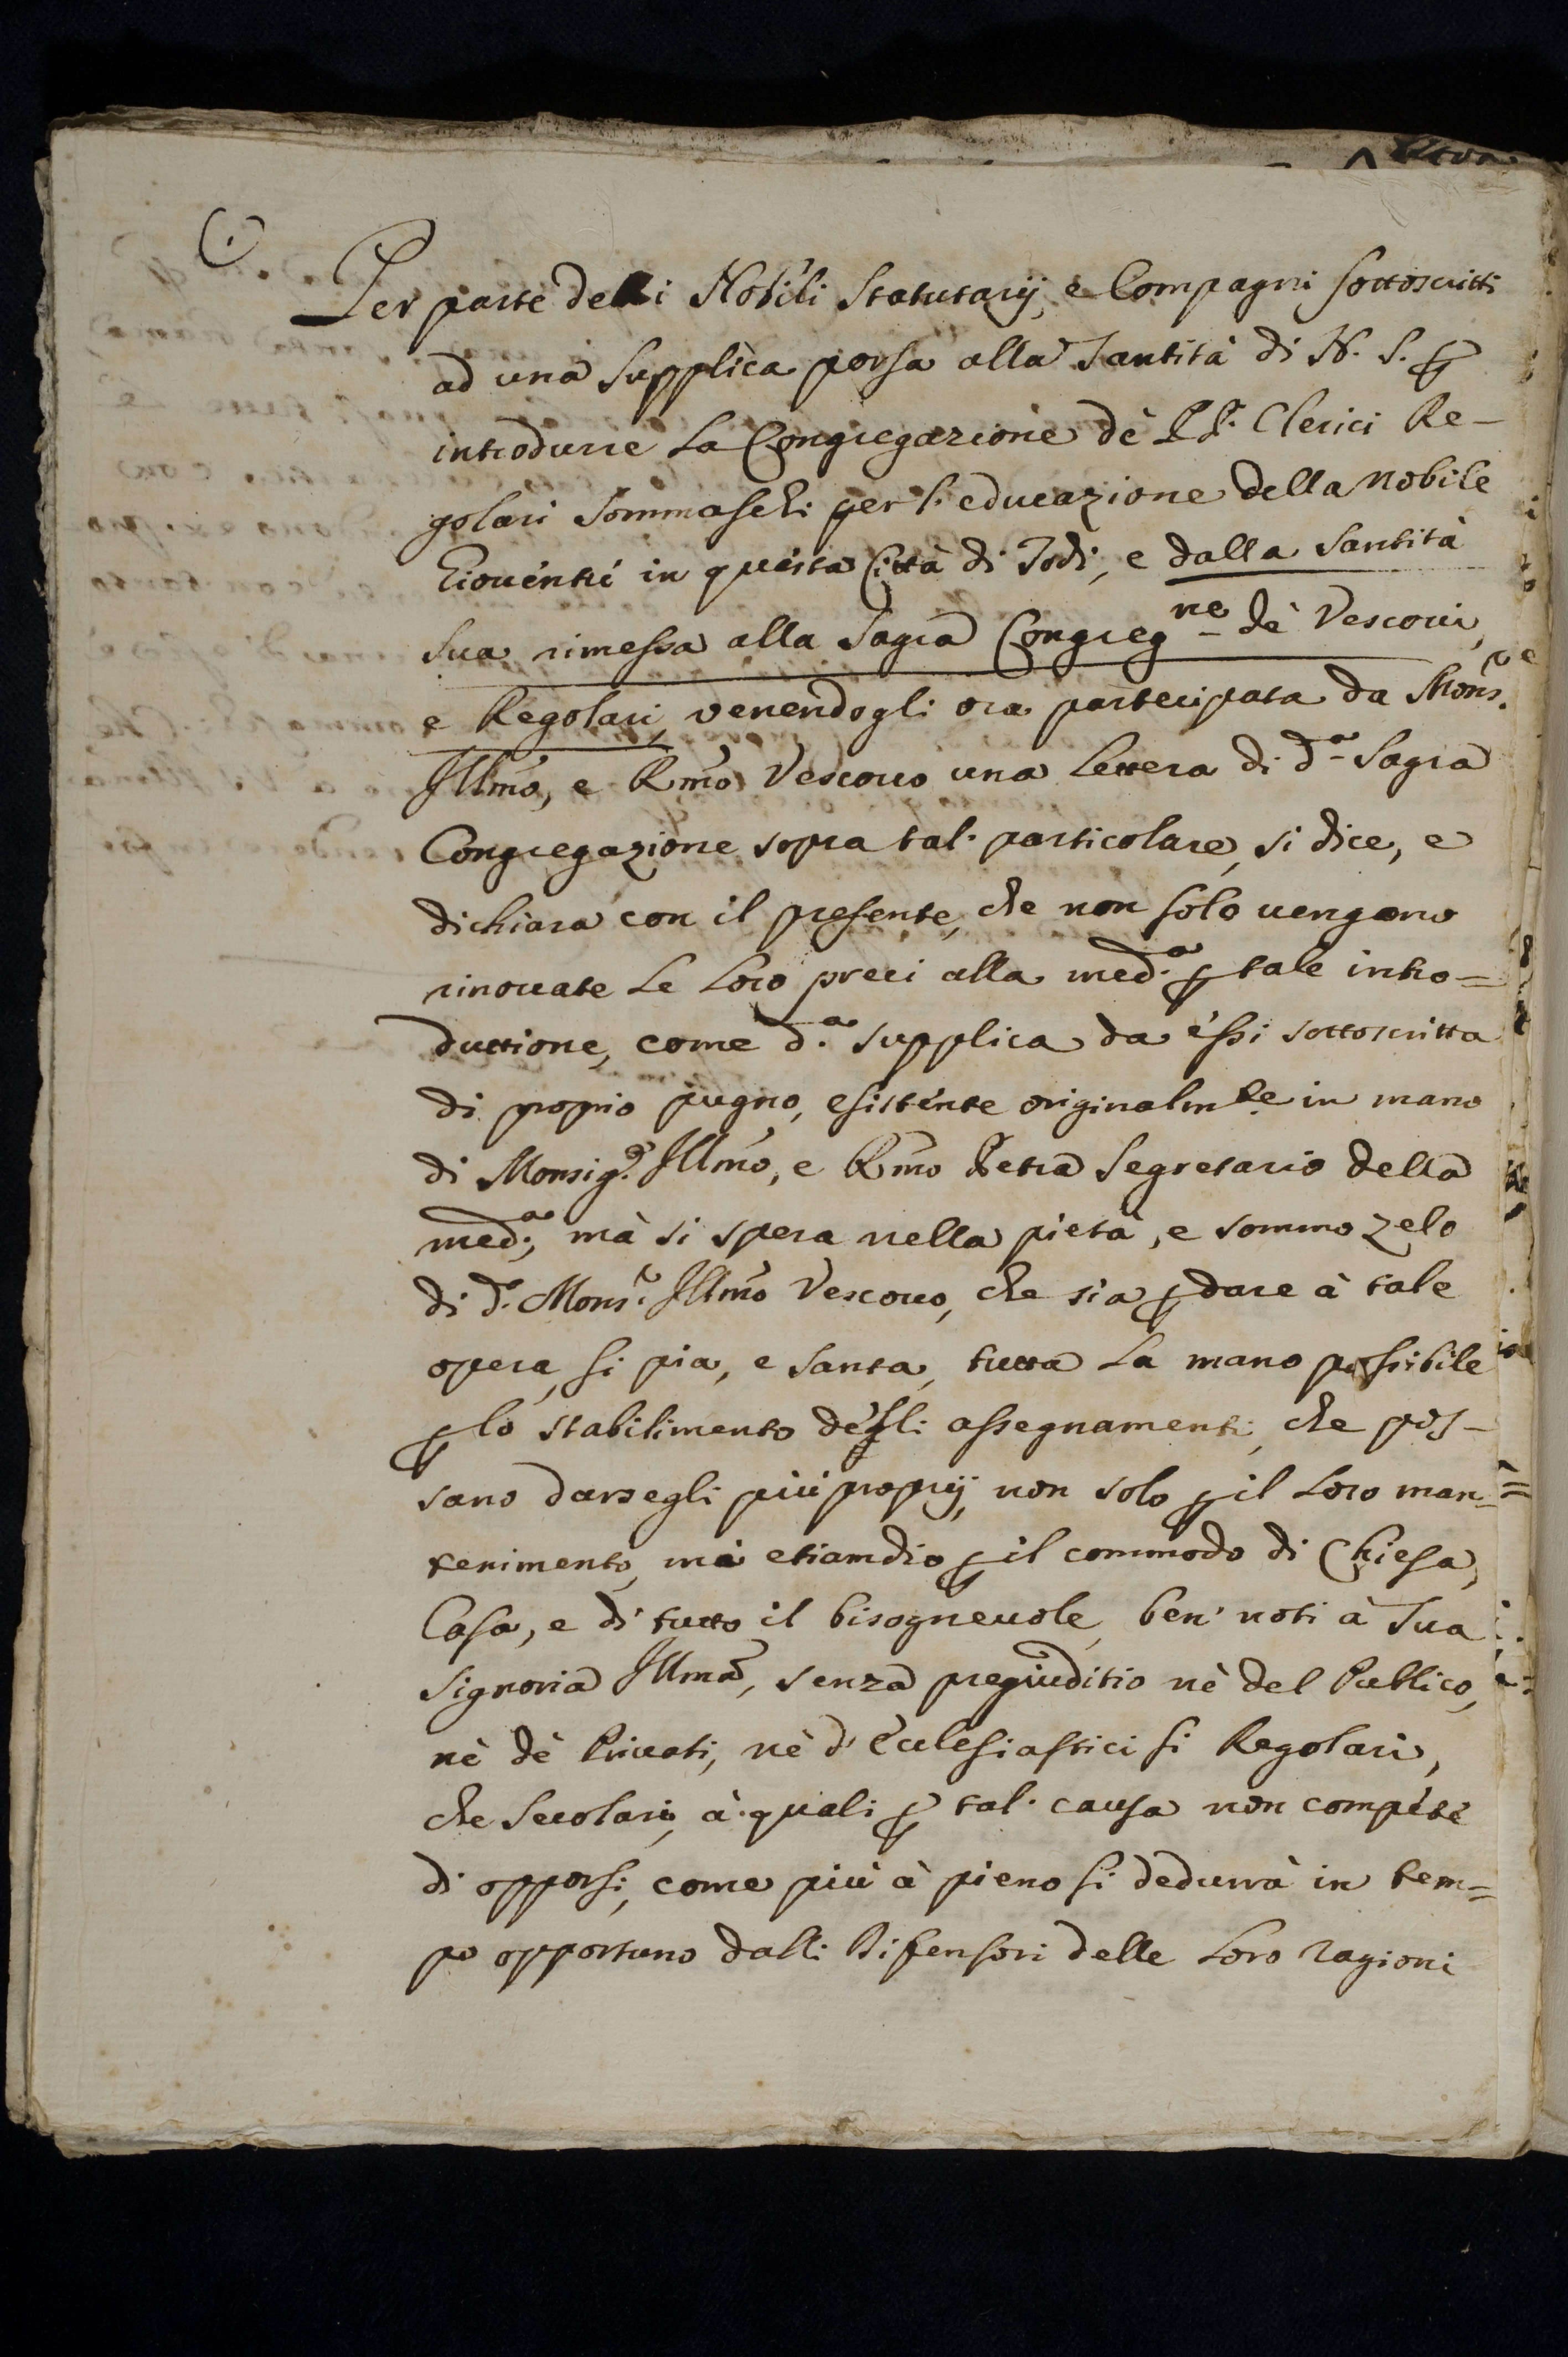 Per parte delli Nobili Statutarij, e Compagni sottoscritti
ad una supplica porsa alla Santità di N. S. p
introdurre la Congregazione dè PP. Clerici Re-
golari Sommaschi per l'educazione della nobile
Gioventù in questa Città di Todi, e dalla Santità
sua rimessa alla Sagra Congreg.ne dè Vescovi,
e Regolari, venendogli ora partecipata da Mons.re
Illmo, e Rmo Vescovo una lettera di d.a Sagra
Congregazione sopra tal particolare, si dice, e
dichiara con il presente, che non solo vengono
rinovate le loro preci alla med.a p tale intro=
duttione, come d.a supplica da essi sottoscritta
di proprio pugno, esistente originalmte in mano
di Monsig.r Illmo, e Rmo Petra Segretario della
med.a, mà si spera nella pietà, e sommo zelo
di d.o Mons.r Illmo Vescovo, che sia p dare à tale
opera, si pia, e santa, tutta la mano possibile
p lo stabilimento degli assegnamenti, che pos-
sano darsegli più proprij, non solo p il loro man=
tenimento, mà etiamdio p il commodo di Chiesa,
Casa, e di tutto il bisognevole, ben noti à Sua
Signoria Illma, senza pregiuditio nè del Publico,
nè dè Privati, nè d'Ecclesiastici si Regolari,
che Secolari, à quali p tal causa non compete
di opporsi, come più à pieno si dedurrà in tem=
po opportuno dalli Difensori delle loro ragioni